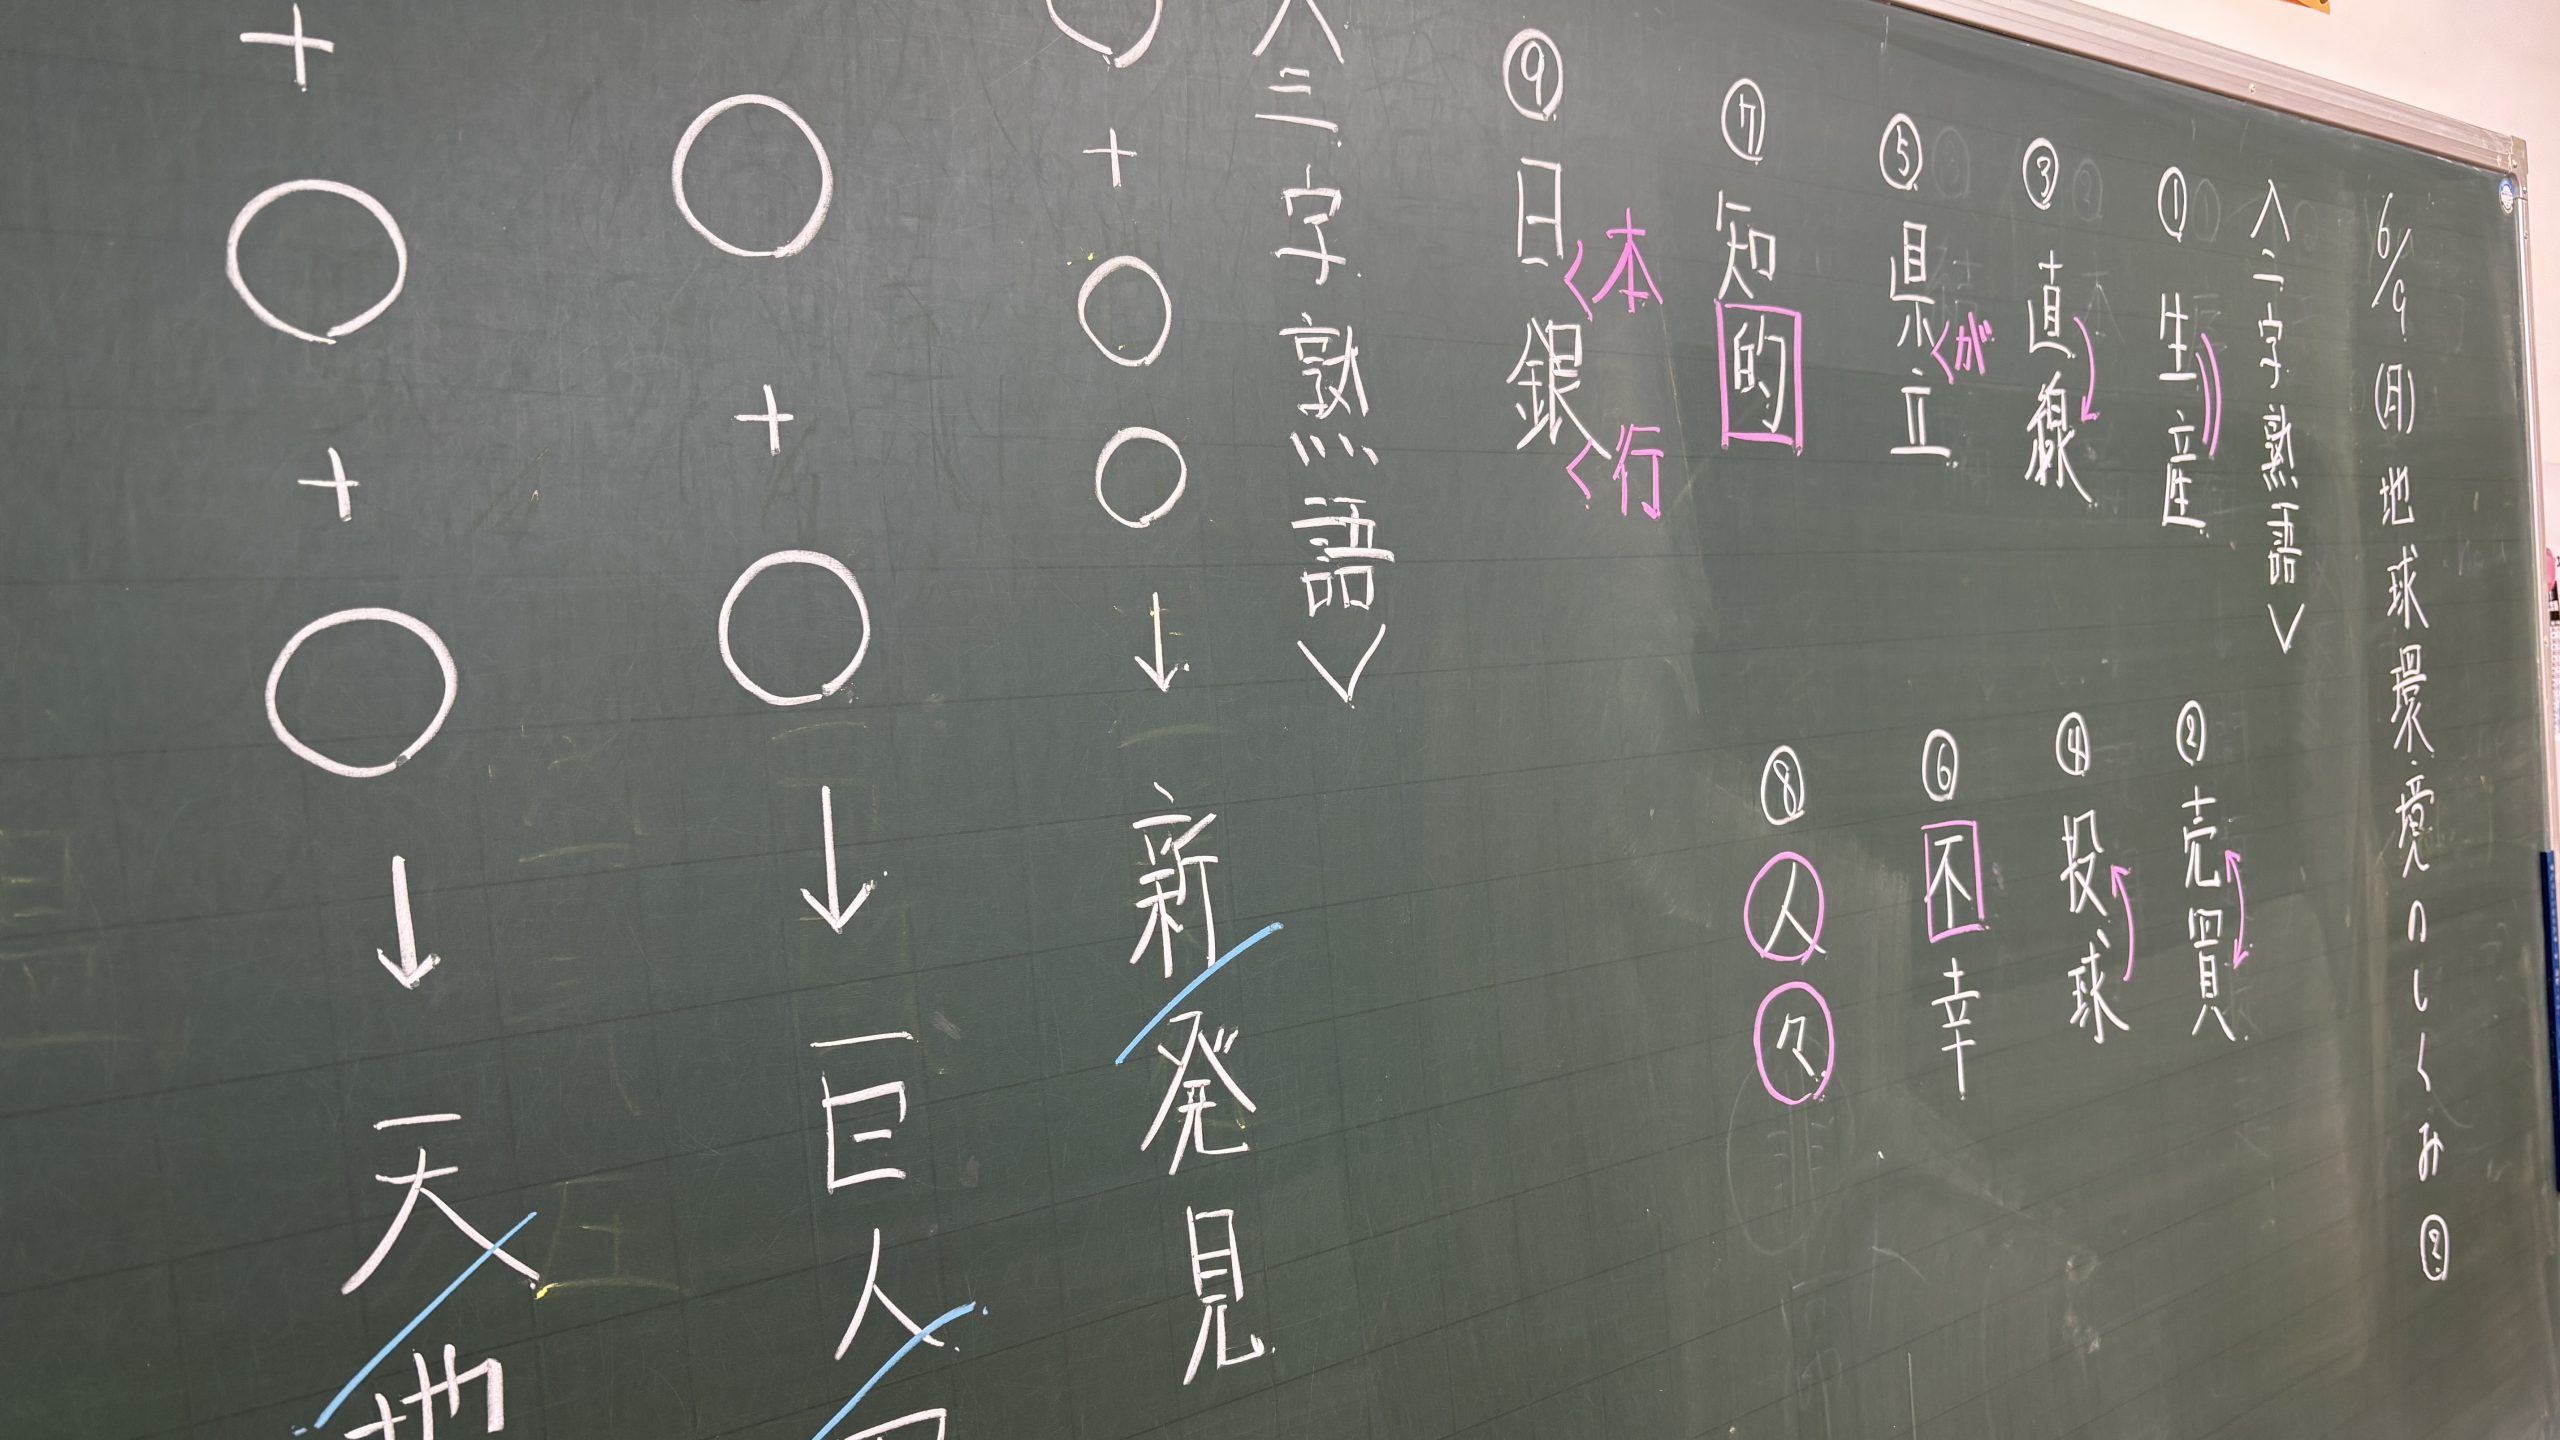 6/9(月)地球環境のしくみ②
〈二字熟語〉
①生産
②売買
③直線
④投球
⑤県立
が
⑥不幸
⑦知的
⑧人々
⑨日銀
本
行
〈三字熟語〉
○+○○→新発見
○+○→一巨人
+○+○→一天地